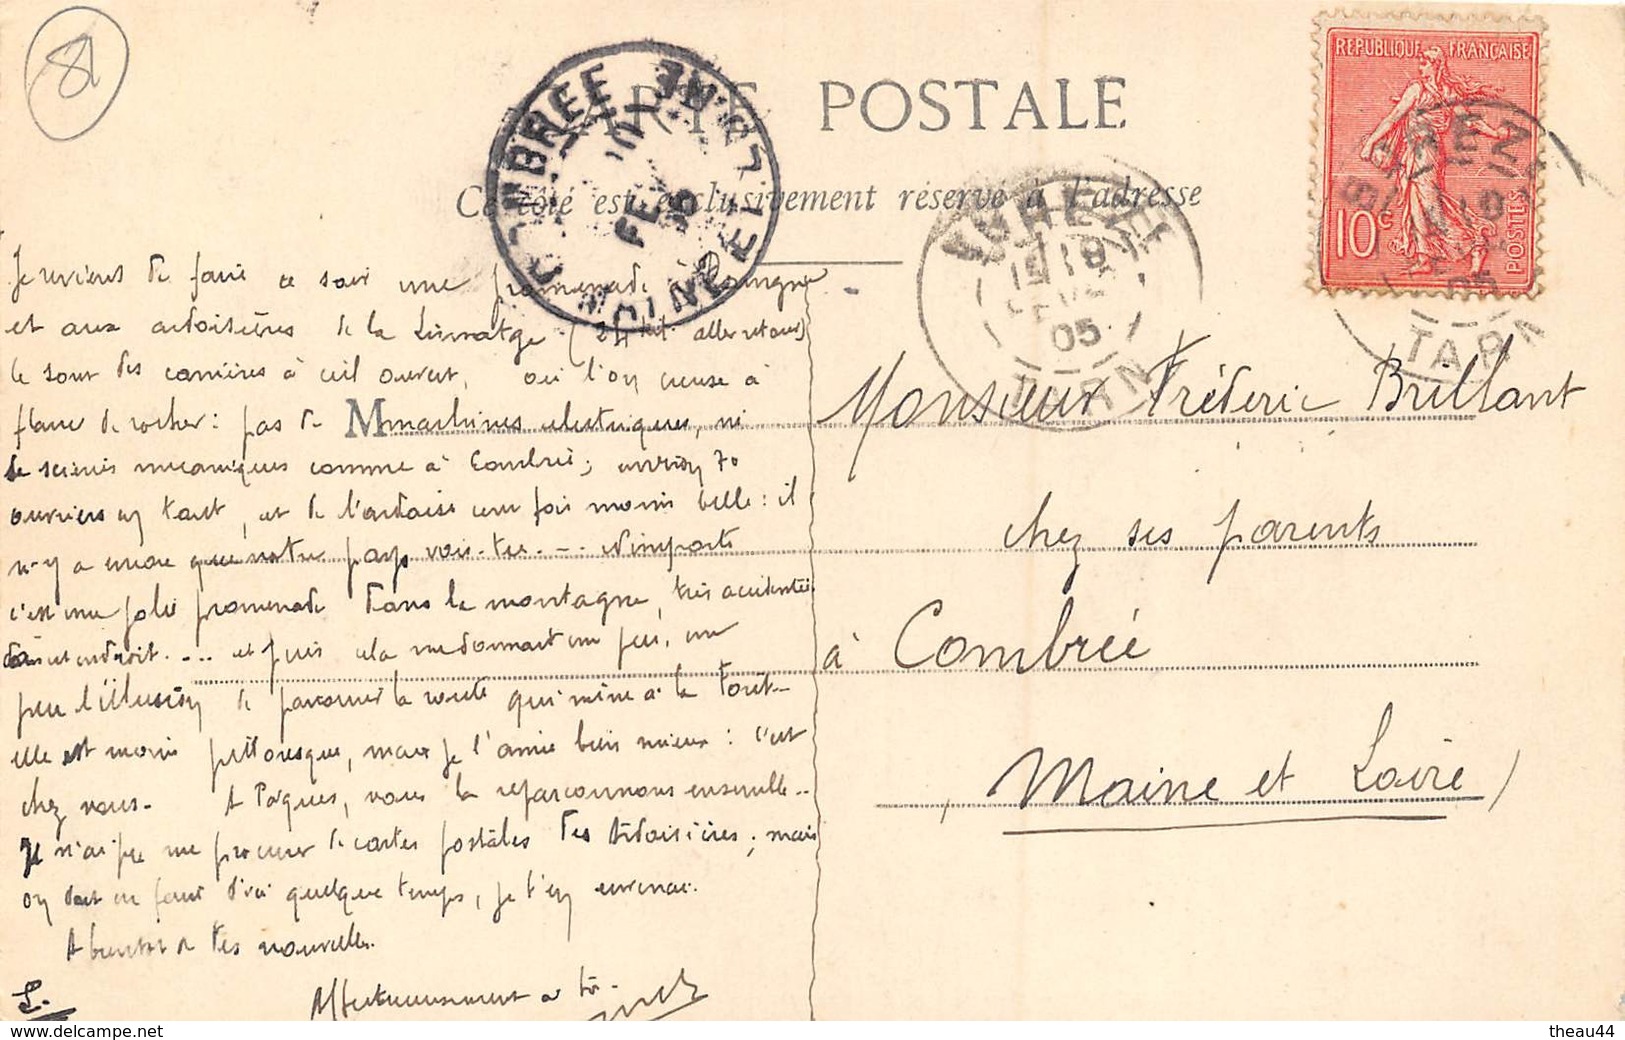 81
CARTE POSTALE
Ce côté est exclusivement réservé à l'adresse
REPUBLIQUE FRANÇAISE
10c
POSTES
COMBREE
MAINE-ET-L
10
FE
05
DUREZE
05
TARN
05
TARN
Je reviens de faire ce soir une promenade à
et aux ardoisières de la (24 kil. aller retour)
Ce sont des carrières à ciel ouvert, où l'on creuse à
flanc de rocher : pas de Mmachines électriques, ni
de scieries mécaniques comme à Combrée ; environ 70
ouvriers en tout, et de l'ardoise cent fois moins belle : il
n-y a encore que notre pays vois-tu --- N'importe
c'est une jolie promenade dans la montagne, très accidentée
dans cet endroit. ... et puis cela me donnait un peu, un
peu l'illusion de parcourir la route qui mène à la Forêt-
elle est moins pittoresque, mais je l'aime bien mieux : c'est
chez nous. A Pâques, nous la reparcourrons ensemble..
Je n'ai pu me procurer de cartes postales des Ardoisières ; mais
on doit en faire d'ici quelque temps, je t'en enverrai.
A bientôt de tes nouvelles.
Affectueusement à toi.
L.
Monsieur Fréderic Brillant
chez ses parents
à Combrée
(Maine et Loire)
theau44